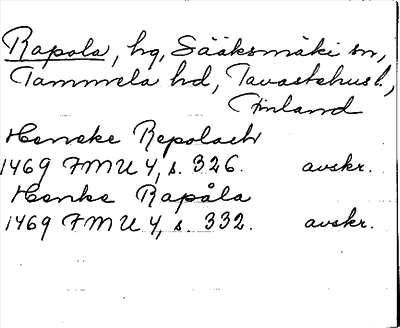 Rapola, hg, Sääksmäki sn,
Tammela hd, Tavastehus l.,
Finland
Heneke Repolach
1469 FMU 4, s. 326. avskr.
Henke Rapåla
1469 FMU 4, s. 332. avskr.